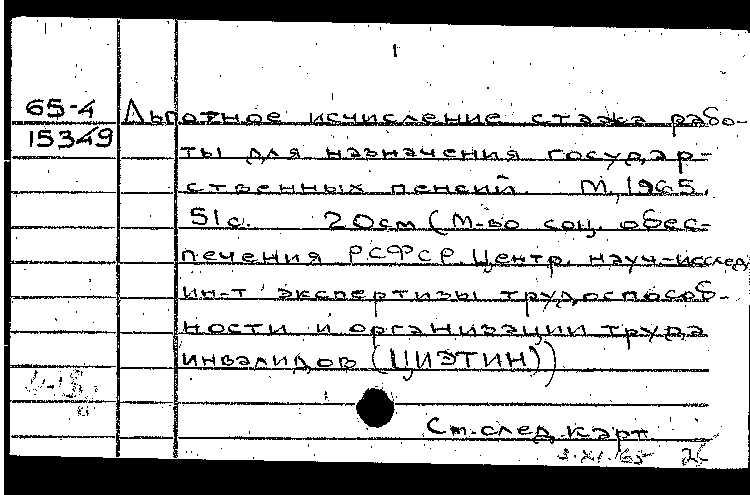 1
65-4 Льготное исчисление стажа рабо-
15349 ты для назначения государ-
ственных пенсий. М., 1965.
51 с. 20 см (М-во соц. обес-
печения РСФСР. Центр. науч-исслед
ин-т экспертизы трудоспособ-
ности и организации труда
инвалидов (ЦИЭТИН))
См. след. карт.
3.XI.65